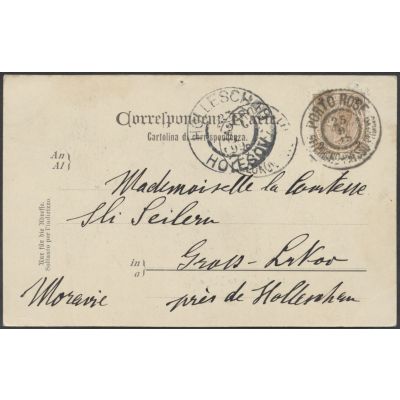 Correspondenz-Karte.
Cartolina di corrispondenza.
HOLLESCHAU
HOLEŠOV
PORTO ROSE
25
An
Al
Mademoiselle la Comtesse
Seilern
in
a
Gross-Lukov
Moravie
près de Holleschau
Nur für die Adresse.
Soltanto per l'indirizzo